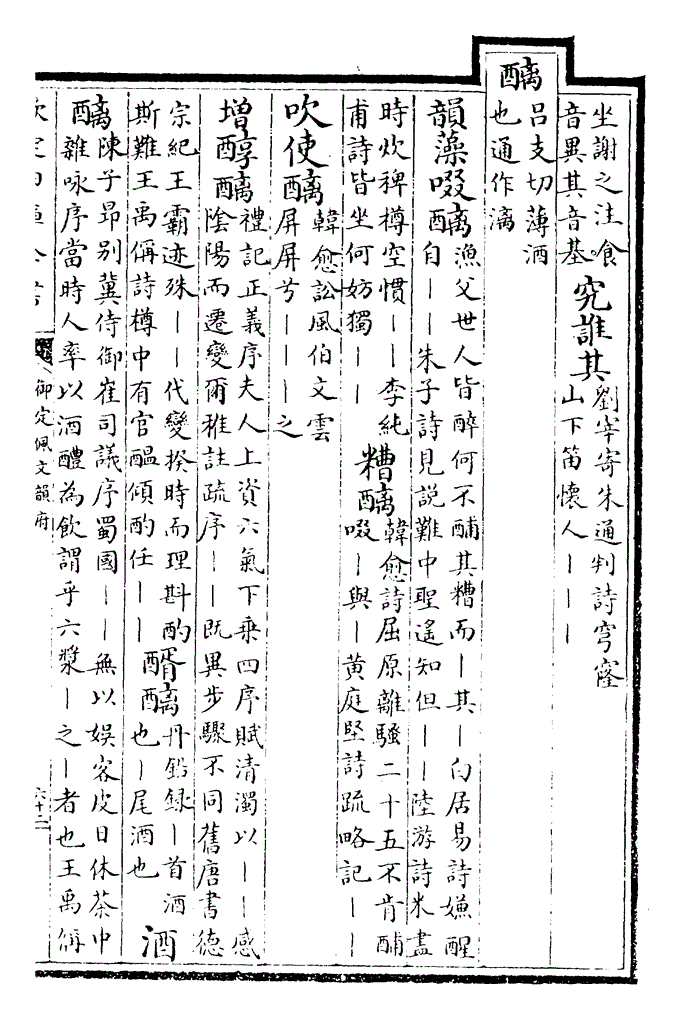 坐謝之注食
音異其音基
究誰其
劉宰寄朱通判詩穹窿
山下笛懷人｜｜｜
醨
吕支切薄酒
也通作漓
韻藻啜醨
漁父世人皆醉何不餔其糟而｜其｜白居易詩嫌醒
自｜｜朱子詩見説難中聖遙知但｜｜陸游詩米盡
時炊稗樽空慣｜｜李純
甫詩皆坐何妨獨｜｜
糟醨
韓愈詩屈原離騷二十五不肯餔
啜｜與｜黄庭堅詩疏略記｜｜
吹使醨
韓愈訟風伯文雲
屏屏兮｜｜｜之
增醇醨
禮記正義序夫人上資六氣下乗四序賦清濁以｜｜感
陰陽而遷變爾雅註疏序｜｜既異步驟不同舊唐書德
宗紀王霸迹殊｜｜代變揆時而理斟酌
斯難王禹偁詩樽中有官醖傾酌任｜｜
醑醨
丹鉛録｜首酒
也｜尾酒也
酒
醨
陳子昻别冀侍御崔司議序蜀國｜｜無以娯客皮日休茶中
雜咏序當時人率以酒醴為飲謂乎六漿｜之｜者也王禹偁
御定佩文韻府
六十二